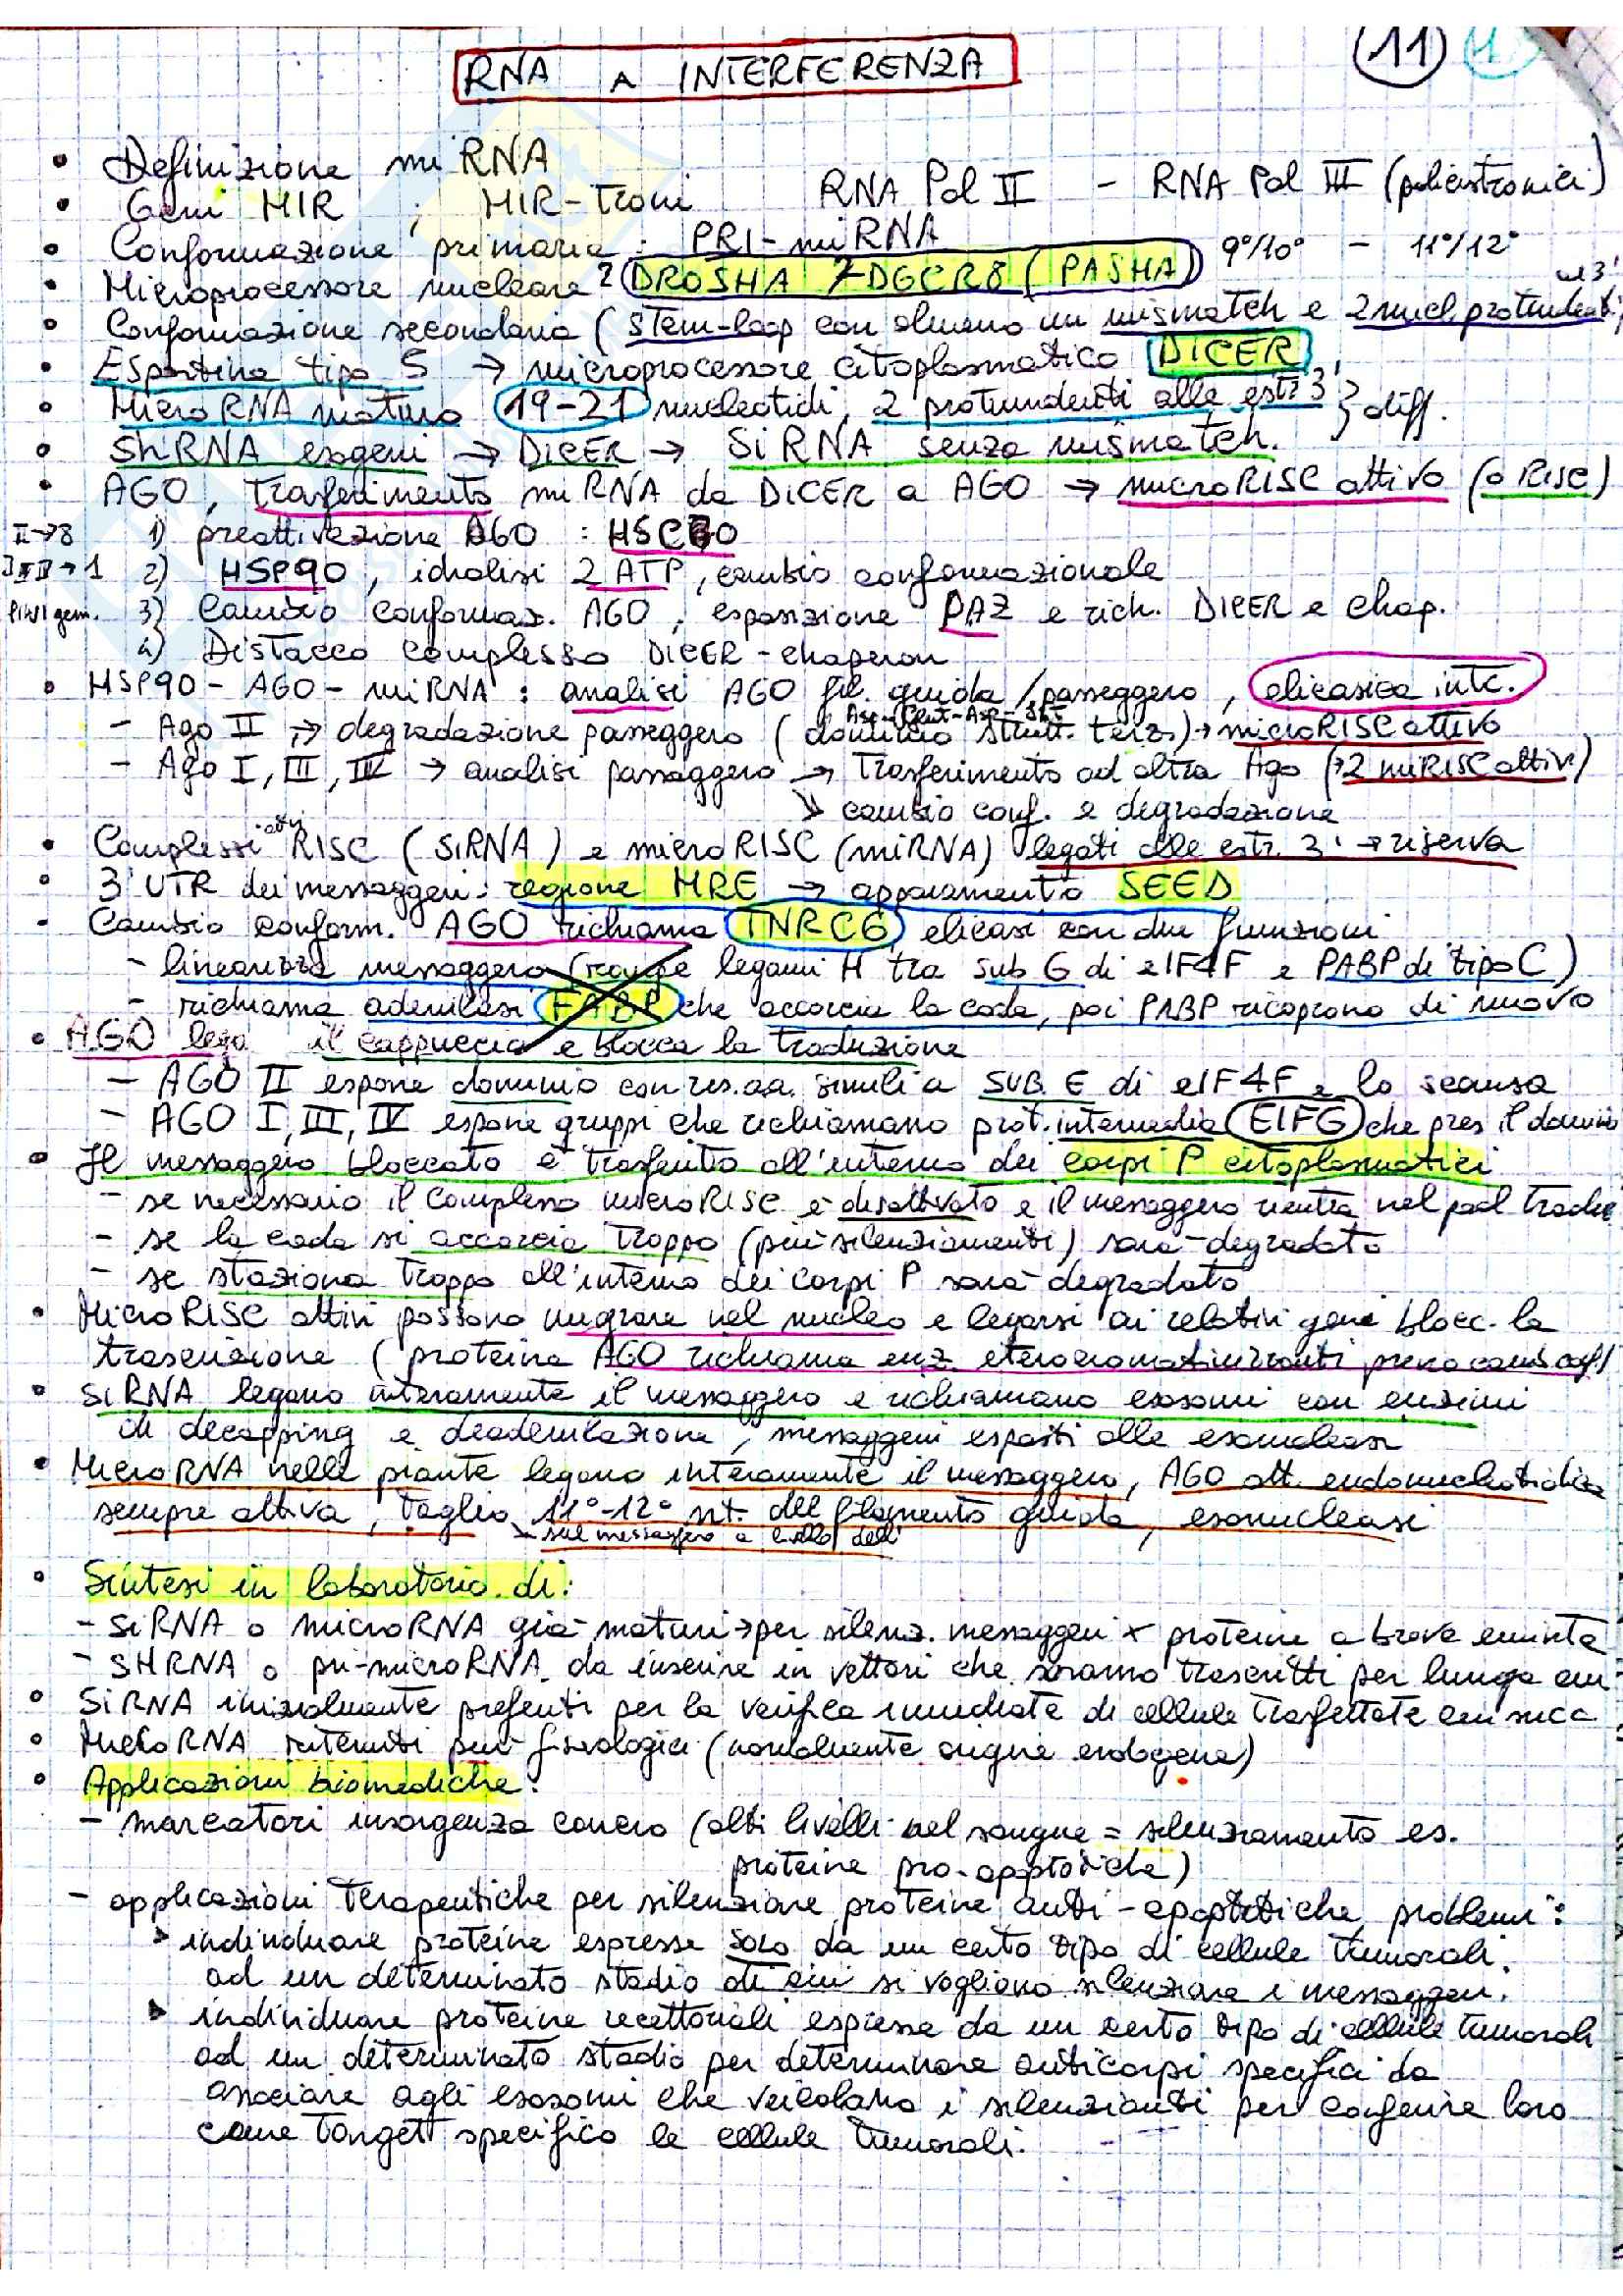 11 1
RNA A INTERFERENZA
• Definizione miRNA
• Geni MIR ; MIR-troni RNA Pol II - RNA Pol III (policistronici)
• Conformazione primaria: PRI-miRNA
• Microprocessore nucleare: DROSHA / DGCR8 (PASHA) 9°/10° - 11°/12°
• Conformazione secondaria (stem-loop con almeno un mismatch e 2 nucl. protundenti al 3'
• Esportina tipo 5 → microprocessore citoplasmatico DICER
• MicroRNA maturo 19-21 nucleotidi, 2 protrundenti alle estr. 3' } diff.
• ShRNA esogeni → DICER → SiRNA senza mismatch.
• AGO, trasferimento miRNA da DICER a AGO → microRISC attivo (o RISC)
II→8 1) preattivazione AGO : HSC70
→ 1 2) HSP90, idrolisi 2 ATP, cambio conformazionale
PIWI gem. 3) Cambio conformaz. AGO, esposizione PAZ e rich. DICER e chap.
4) Distacco complesso DICER-chaperon
• HSP90 - AGO - miRNA : analisi AGO fil. guida / passeggero, elicasica intr.
Asp-Glut-Asp-Ist
- Ago II → degradazione passeggero (dominio strutt. terz.) → microRISC attivo
- Ago I, III, IV → analisi passaggero → trasferimento ad altra Ago (→2 miRISC attivi)
↘ cambio conf. e degradazione
• Complessi attivi RISC (SiRNA) e microRISC (miRNA) legati alle estr. 3' → riserva
• 3' UTR dei messaggeri: regione MRE → appaiamento SEED
• Cambio conform. AGO richiama TNRC6, elicasi con due funzioni
- linearizza messaggero (rompe legami H tra sub G di eIF4F e PABP di tipo C)
- richiama adenilasi che accorcia la coda, poi PABP ricoprono di nuovo
• AGO lega il cappuccio e blocca la traduzione
- AGO II espone dominio con res. aa. simili a SUB. E di eIF4F e lo scansa
- AGO I, III, IV espone gruppi che richiamano prot. intermedia EIFG che pres. il dominio
• Il messaggero bloccato è trasferito all'interno dei corpi P citoplasmatici
- se necessario il complesso microRISC è disattivato e il messaggero rientra nel pool trad.
- se la coda si accorcia troppo (più silenziamenti) sarà degradato
- se staziona troppo all'interno dei corpi P sarà degradato
• MicroRISC attivi possono migrare nel nucleo e legarsi ai relativi geni blocc. la
trascrizione (proteina AGO richiama enz. eterocromatinizzanti previo camb. conf.)
• SiRNA legano interamente il messaggero e richiamano esosomi con enzimi
di decapping e deadenilazione, messaggeri esposti alle esonucleasi
• MicroRNA nelle piante legano interamente il messaggero, AGO att. endonucleotidica
sempre attiva, taglio 11°-12° nt. del filamento guida, esonucleasi
sul messaggero a livello dell'
• Sintesi in laboratorio di:
- SiRNA o microRNA già maturi → per silenz. messaggeri x proteine a breve emivita
- SHRNA o pri-microRNA da inserire in vettori che saranno trascritti per lunga em.
• SiRNA inizialmente preferiti per la verifica immediata di cellule trasfettate
• MicroRNA ritenuti più fisiologici (normalmente origine endogena)
• Applicazioni biomediche:
- marcatori insorgenza cancro (alti livelli nel sangue = silenziamento es.
proteine pro-apoptotiche)
- applicazioni terapeutiche per silenziare proteine anti-apoptotiche, problemi:
▸ individuare proteine espresse SOLO da un certo tipo di cellule tumorali
ad un determinato stadio di cui si vogliono silenziare i messaggeri.
▸ individuare proteine recettoriali espresse da un certo tipo di cellule tumorali
ad un determinato stadio per determinare anticorpi specifici da
associare agli esosomi che veicolano i silenzianti per conferire loro
come target specifico le cellule tumorali.